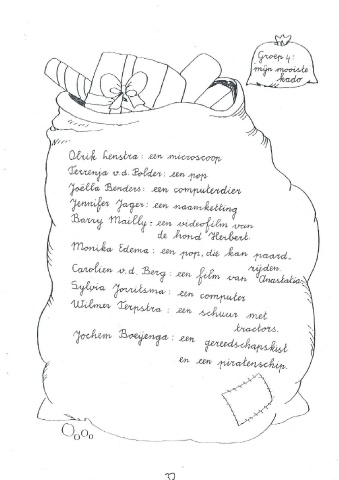 Groep 4:
mijn mooiste
kado
Olrik Lenstra: een microscoop
Terrenja v.d. Polder: een pop
Joëlla Benders: een computerdier
Jennifer Jager: een naamketting
Barry Mailly: een videofilm van
de hond Herbert.
Monika Edema: een pop, die kan paard
rijden.
Carolien v.d. Berg: een film van Anastasia.
Sylvia Jorritsma: een computer
Wilmer Terpstra: een schuur met
tractors.
Jochem Boeijenga: een gereedschapskist
en een piratenschip.